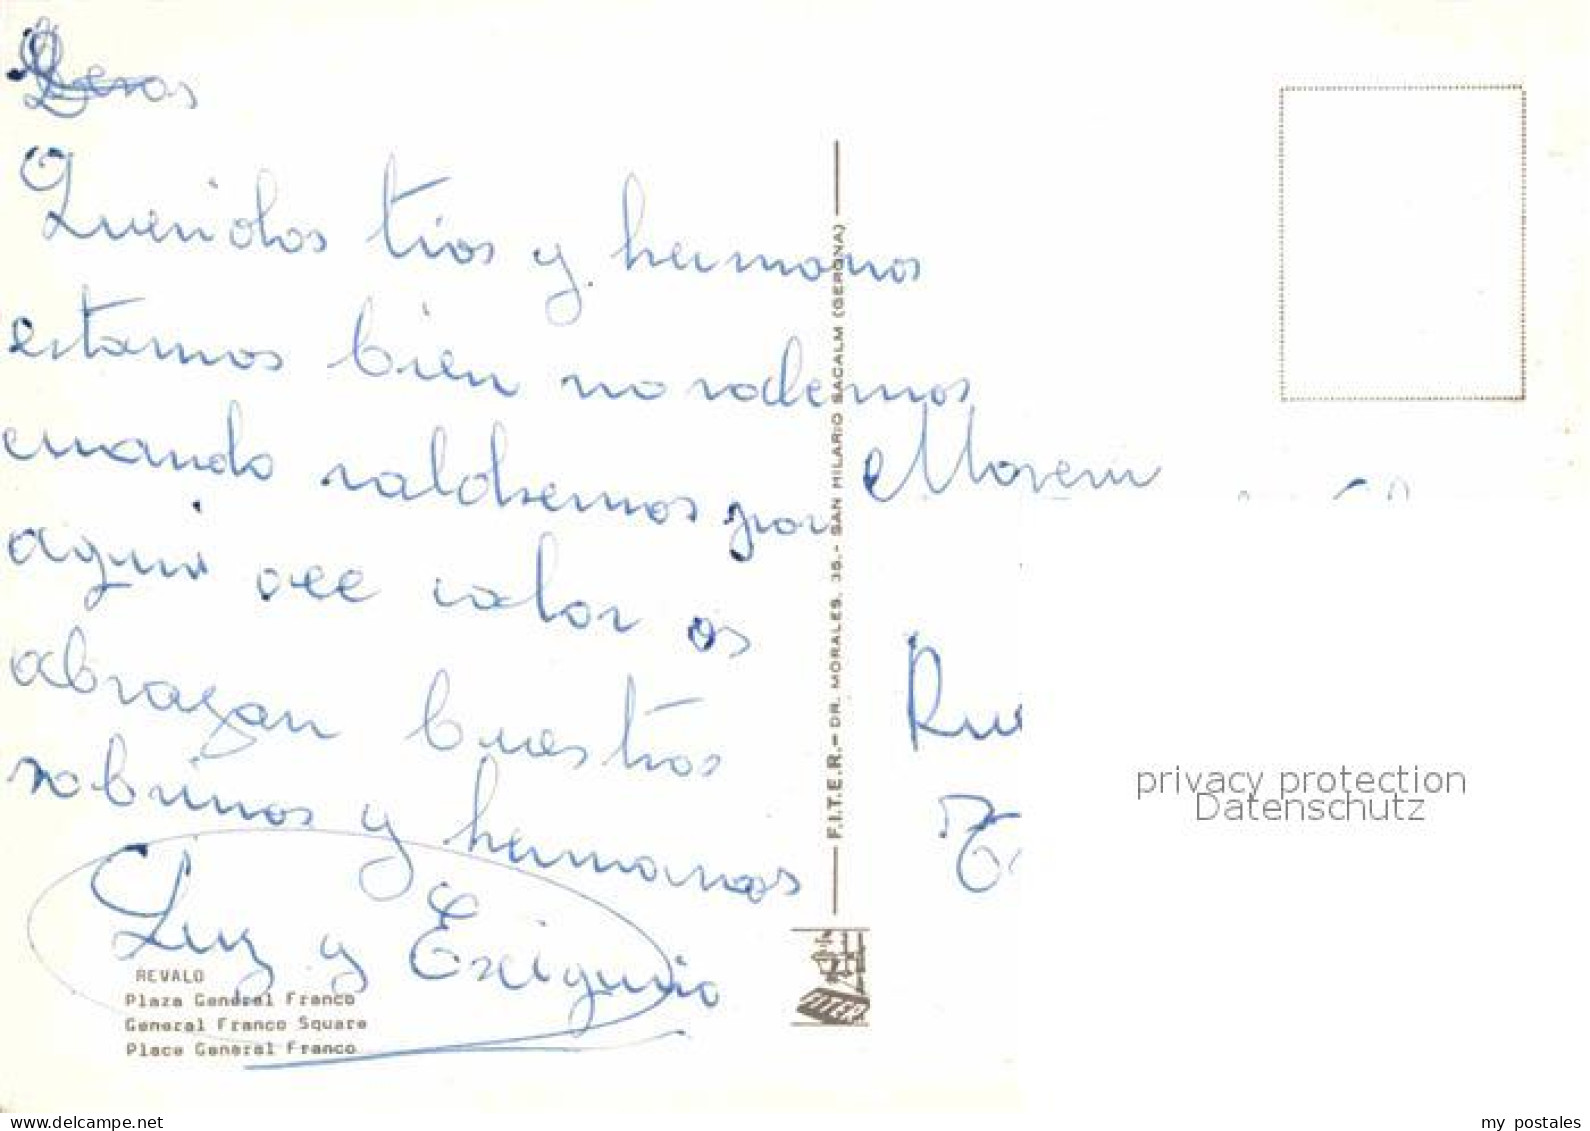 Queridos tios y hermanos
estamos bien no sademos
cuando saldremos por
aqui ace calor os
abrazan buestros
sobrinos y hermanos
Luz y Exiquio
REVALO
Plaza General Franco
General Franco Square
Place General Franco
F.I.T.E.R.- DR. MORALES, 36.- SAN HILARIO SACALM (GERONA)
privacy protection
Datenschutz
delcampe.net
my_postales